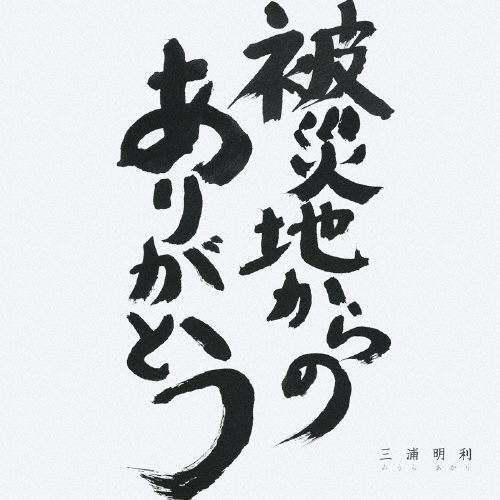 被災地からの
ありがとう
三浦明利
みうら あかり